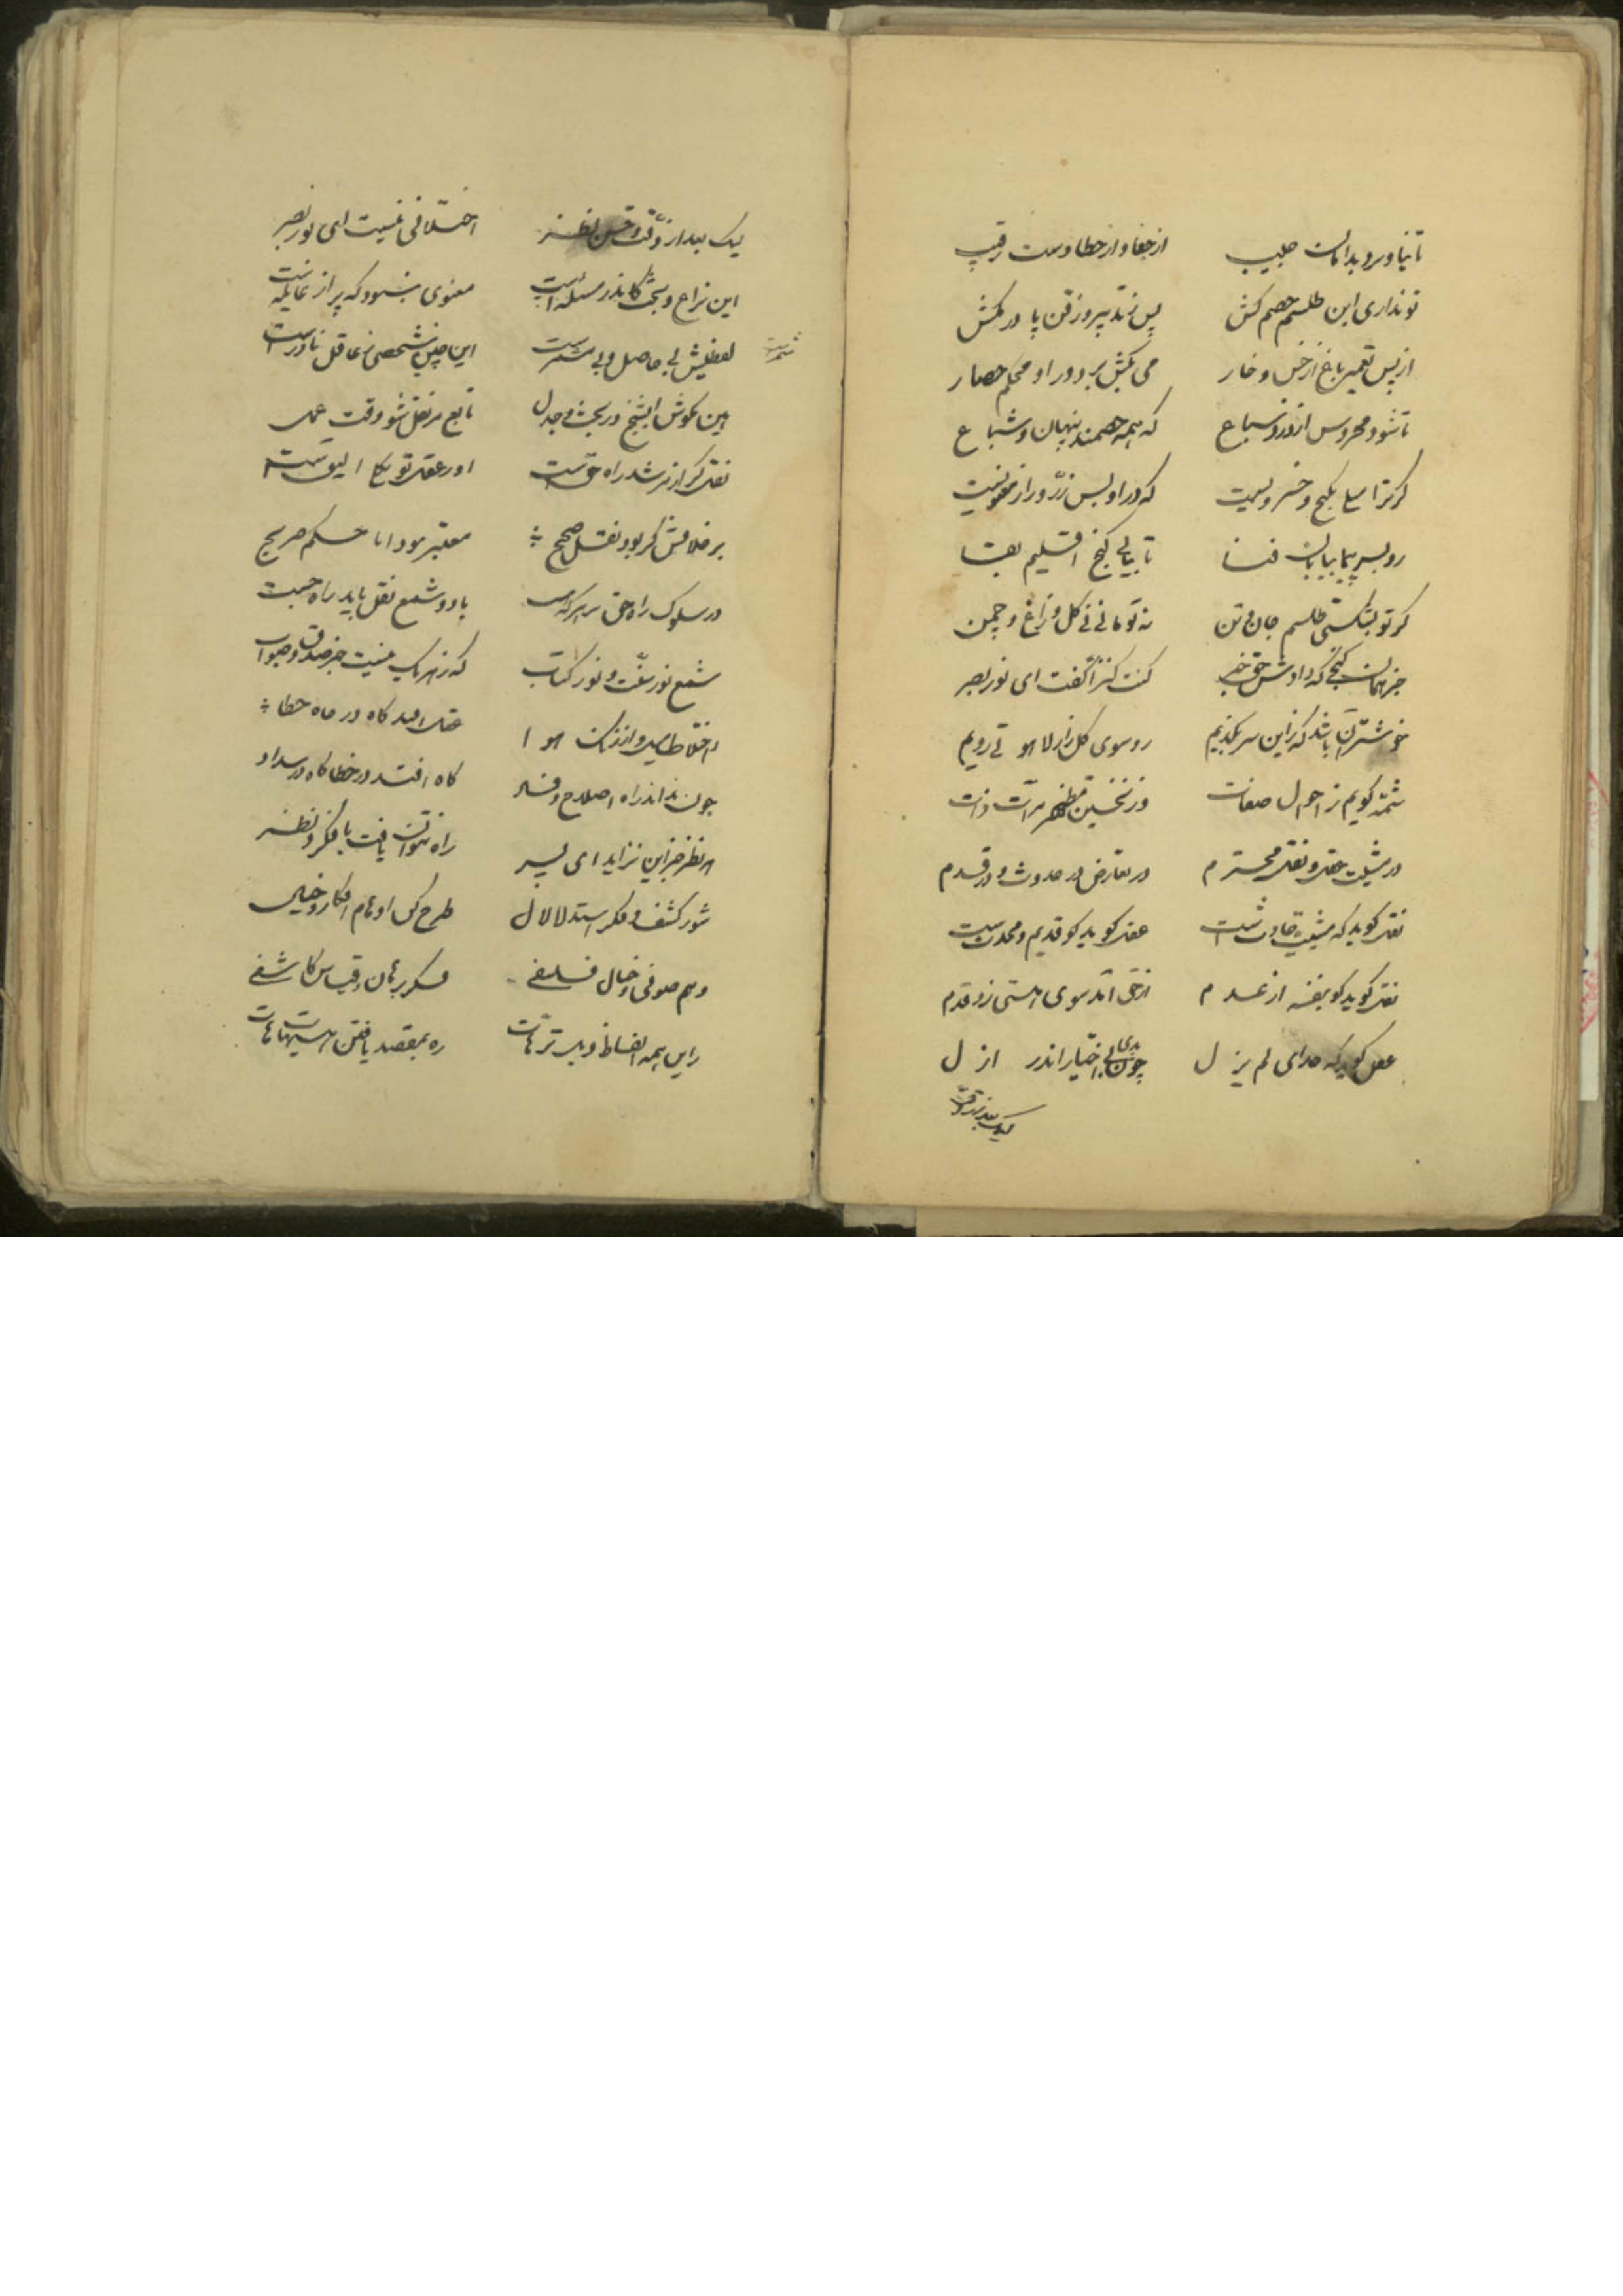 تا نیاورد بدامان حبیب از جفا و از خطا دست رقیب
تو نداری این طلسم خصم کش پس ز پیروزفن پا در مکش
از پس تعمیر باغ از خس و خار می بکش بر دور او محکم حصار
تا شود محروس از دزد و سباع که همه خصمند پنهان و شباع
کر ترا میلی بکنج و خسرویست که در او بس زر و راز معنویست
رو بسر پیما بیابان فنا تا بیابی کنج اقلیم بقا
کر تو بشکستی طلسم جان و تن نه تو مانی نی کل و زاغ و چمن
جز همان کنجی که دادش حق خبر کنت کنزا کفت ای نور بصر
خوشتر آن باشد کزین سر بکذریم رو سوی کلزار لاهوتی رویم
شمه کویم ز احوال صفات وز نخستین مظهر مرآت ذات
در مشیت عقل و نقل محترم در تعارض در حدوث و در قدم
نقل کوید که مشیت حادثست عقل کوید کو قدیم و محدثست
نقل کوید کو بنفسه از عدم از حق آمد سوی هستی زد قدم
عقل کوید که خدای لم یزل چون بدی بی اختیار اندر ازل
لیک بعد از دقت
لیک بعد از دقت و حسن نظر اختلافی نیست ای نور بصر
این نزاع و بحث کاندر مسئله است معنوی نبود که پر از غایله است
لفظیش بی حاصل و بی ثمرست این چنین شخصی ز عاقل نادرست
ثمرست
هین مکوش ای شیخ در بحث و جدل تابع مر نقل شو وقت عمل
نقل کر از مرشد راه حقست او ز عقل تو بکار الیق است
بر خلافش کر بود نقل صحیح معتبر نبود ابا حکم صریح
در سلوک راه حق بر هر که هست با دو شمع نقل باید راه جست
شمع نور سنت و نور کتاب که ز هر یک نیست جز صدق و صواب
ز اختلاط وهم و از درک هوا عقل افتد کاه در چاه خطا
چون نداند راه اصلاح و فساد کاه افتد در خطا کاه در سداد
از نظر جز این نزاید ای پسر راه نتوان یافت با فکر و نظر
شور کشف و فکر استدلال ل طرح کن اوهام افکار و خیال
وهم صوفی و خیال فلسفی فکر برهان و قیاس کاشفی
زاین همه الفاظ و بس ترهات ره بمقصد یافتن هیهات هات